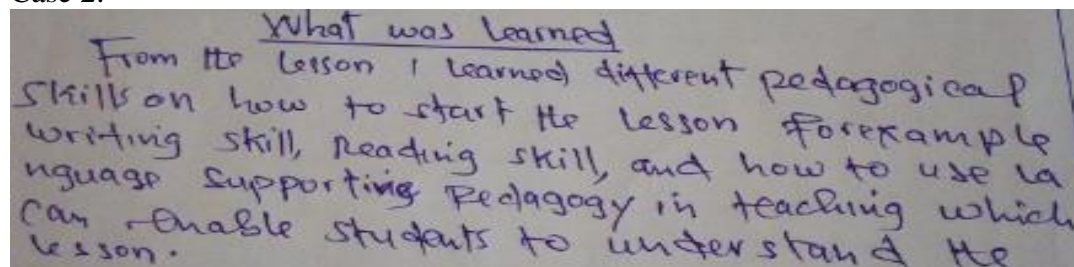 What was learned
From the lesson I learned different pedagogical
skills on how to start the lesson forexample
writing skill, Reading skill, and how to use la
nguage supporting Pedagogy in teaching which
can enable students to understand the
lesson.